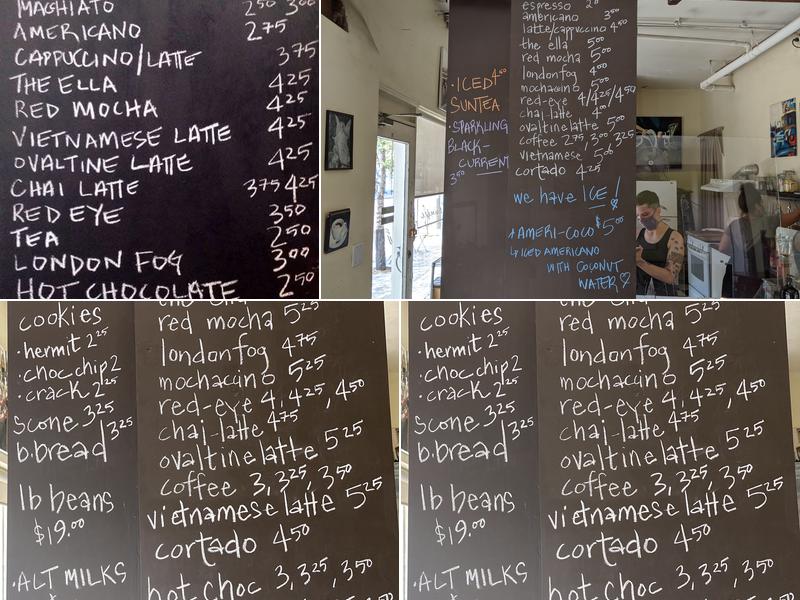 MACHIATO 2⁵⁰ 3⁰⁰
AMERICANO 2⁷⁵
CAPPUCCINO/LATTE 3⁷⁵
THE ELLA 4²⁵
RED MOCHA 4²⁵
VIETNAMESE LATTE 4²⁵
OVALTINE LATTE 4²⁵
CHAI LATTE 3⁷⁵ 4²⁵
RED EYE 3⁵⁰
TEA 2⁵⁰
LONDON FOG 3⁰⁰
HOT CHOCOLATE 2⁵⁰
·ICED 4⁵⁰
SUNTEA
·SPARKLING
BLACK-
CURRENT
3⁵⁰
espresso
americano 3⁰⁰
latte/cappuccino 4⁵⁰
the ella 5⁰⁰
red mocha 5⁰⁰
londonfog 4⁰⁰
mochaccino 5⁰⁰
red-eye 4/4²⁵/4⁵⁰
chai latte 4⁰⁰
ovaltine latte 5⁰⁰
coffee 2⁷⁵, 3⁰⁰, 3²⁵
vietnamese 5⁰⁰
cortado 4²⁵
we have ICE!
AMERI-COCO $5⁰⁰
↳ ICED AMERICANO
WITH COCONUT
WATER ♡
cookies
·hermit 2²⁵
·choc chip 2
·crack 2²⁵
scone 3²⁵
b.bread 3²⁵
1b beans
$19.⁰⁰
·ALT MILKS
red mocha 5²⁵
londonfog 4⁷⁵
mochacino 5²⁵
red-eye 4, 4²⁵, 4⁵⁰
chai-latte 4⁷⁵
ovaltine latte 5²⁵
coffee 3, 3²⁵, 3⁵⁰
vietnamese latte 5²⁵
cortado 4⁵⁰
hot choc 3, 3²⁵, 3⁵⁰
cookies
·hermit 2²⁵
·choc chip 2
·crack 2²⁵
scone 3²⁵
b.bread 3²⁵
1b beans
$19.⁰⁰
·ALT MILKS
red mocha 5²⁵
londonfog 4⁷⁵
mochacino 5²⁵
red-eye 4, 4²⁵, 4⁵⁰
chai-latte 4⁷⁵
ovaltine latte 5²⁵
coffee 3, 3²⁵, 3⁵⁰
vietnamese latte 5²⁵
cortado 4⁵⁰
hot choc 3, 3²⁵, 3⁵⁰